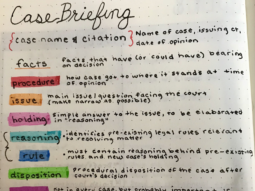 Case Briefing
{case name & citation} Name of case, issuing ct,
date of opinion
facts Facts that have (or could have) bearing
on decision
procedure how case got to where it stands at time
of opinion
issue main issue/question facing the court
(make narrow as possible)
holding simple answer to the issue, to be elaborated
in "reasoning"
reasoning identifies pre-existing legal rules relevant
to resolving matter
rule must contain reasoning behind pre-existing
rules and new case's holding
disposition procedural disposition of the case after
court's decision
not in every case, but probably important if